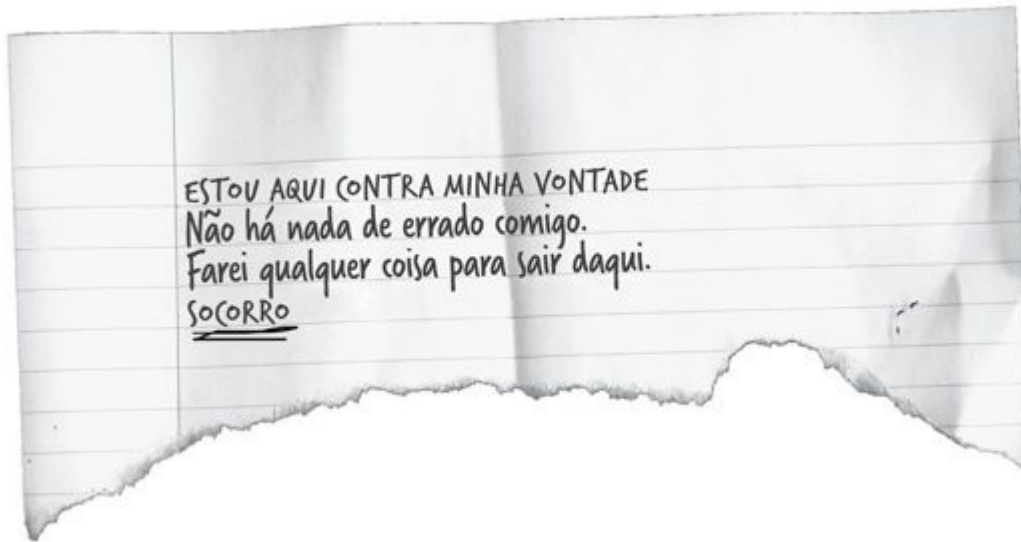 ESTOU AQUI CONTRA MINHA VONTADE
Não há nada de errado comigo.
Farei qualquer coisa para sair daqui.
SOCORRO